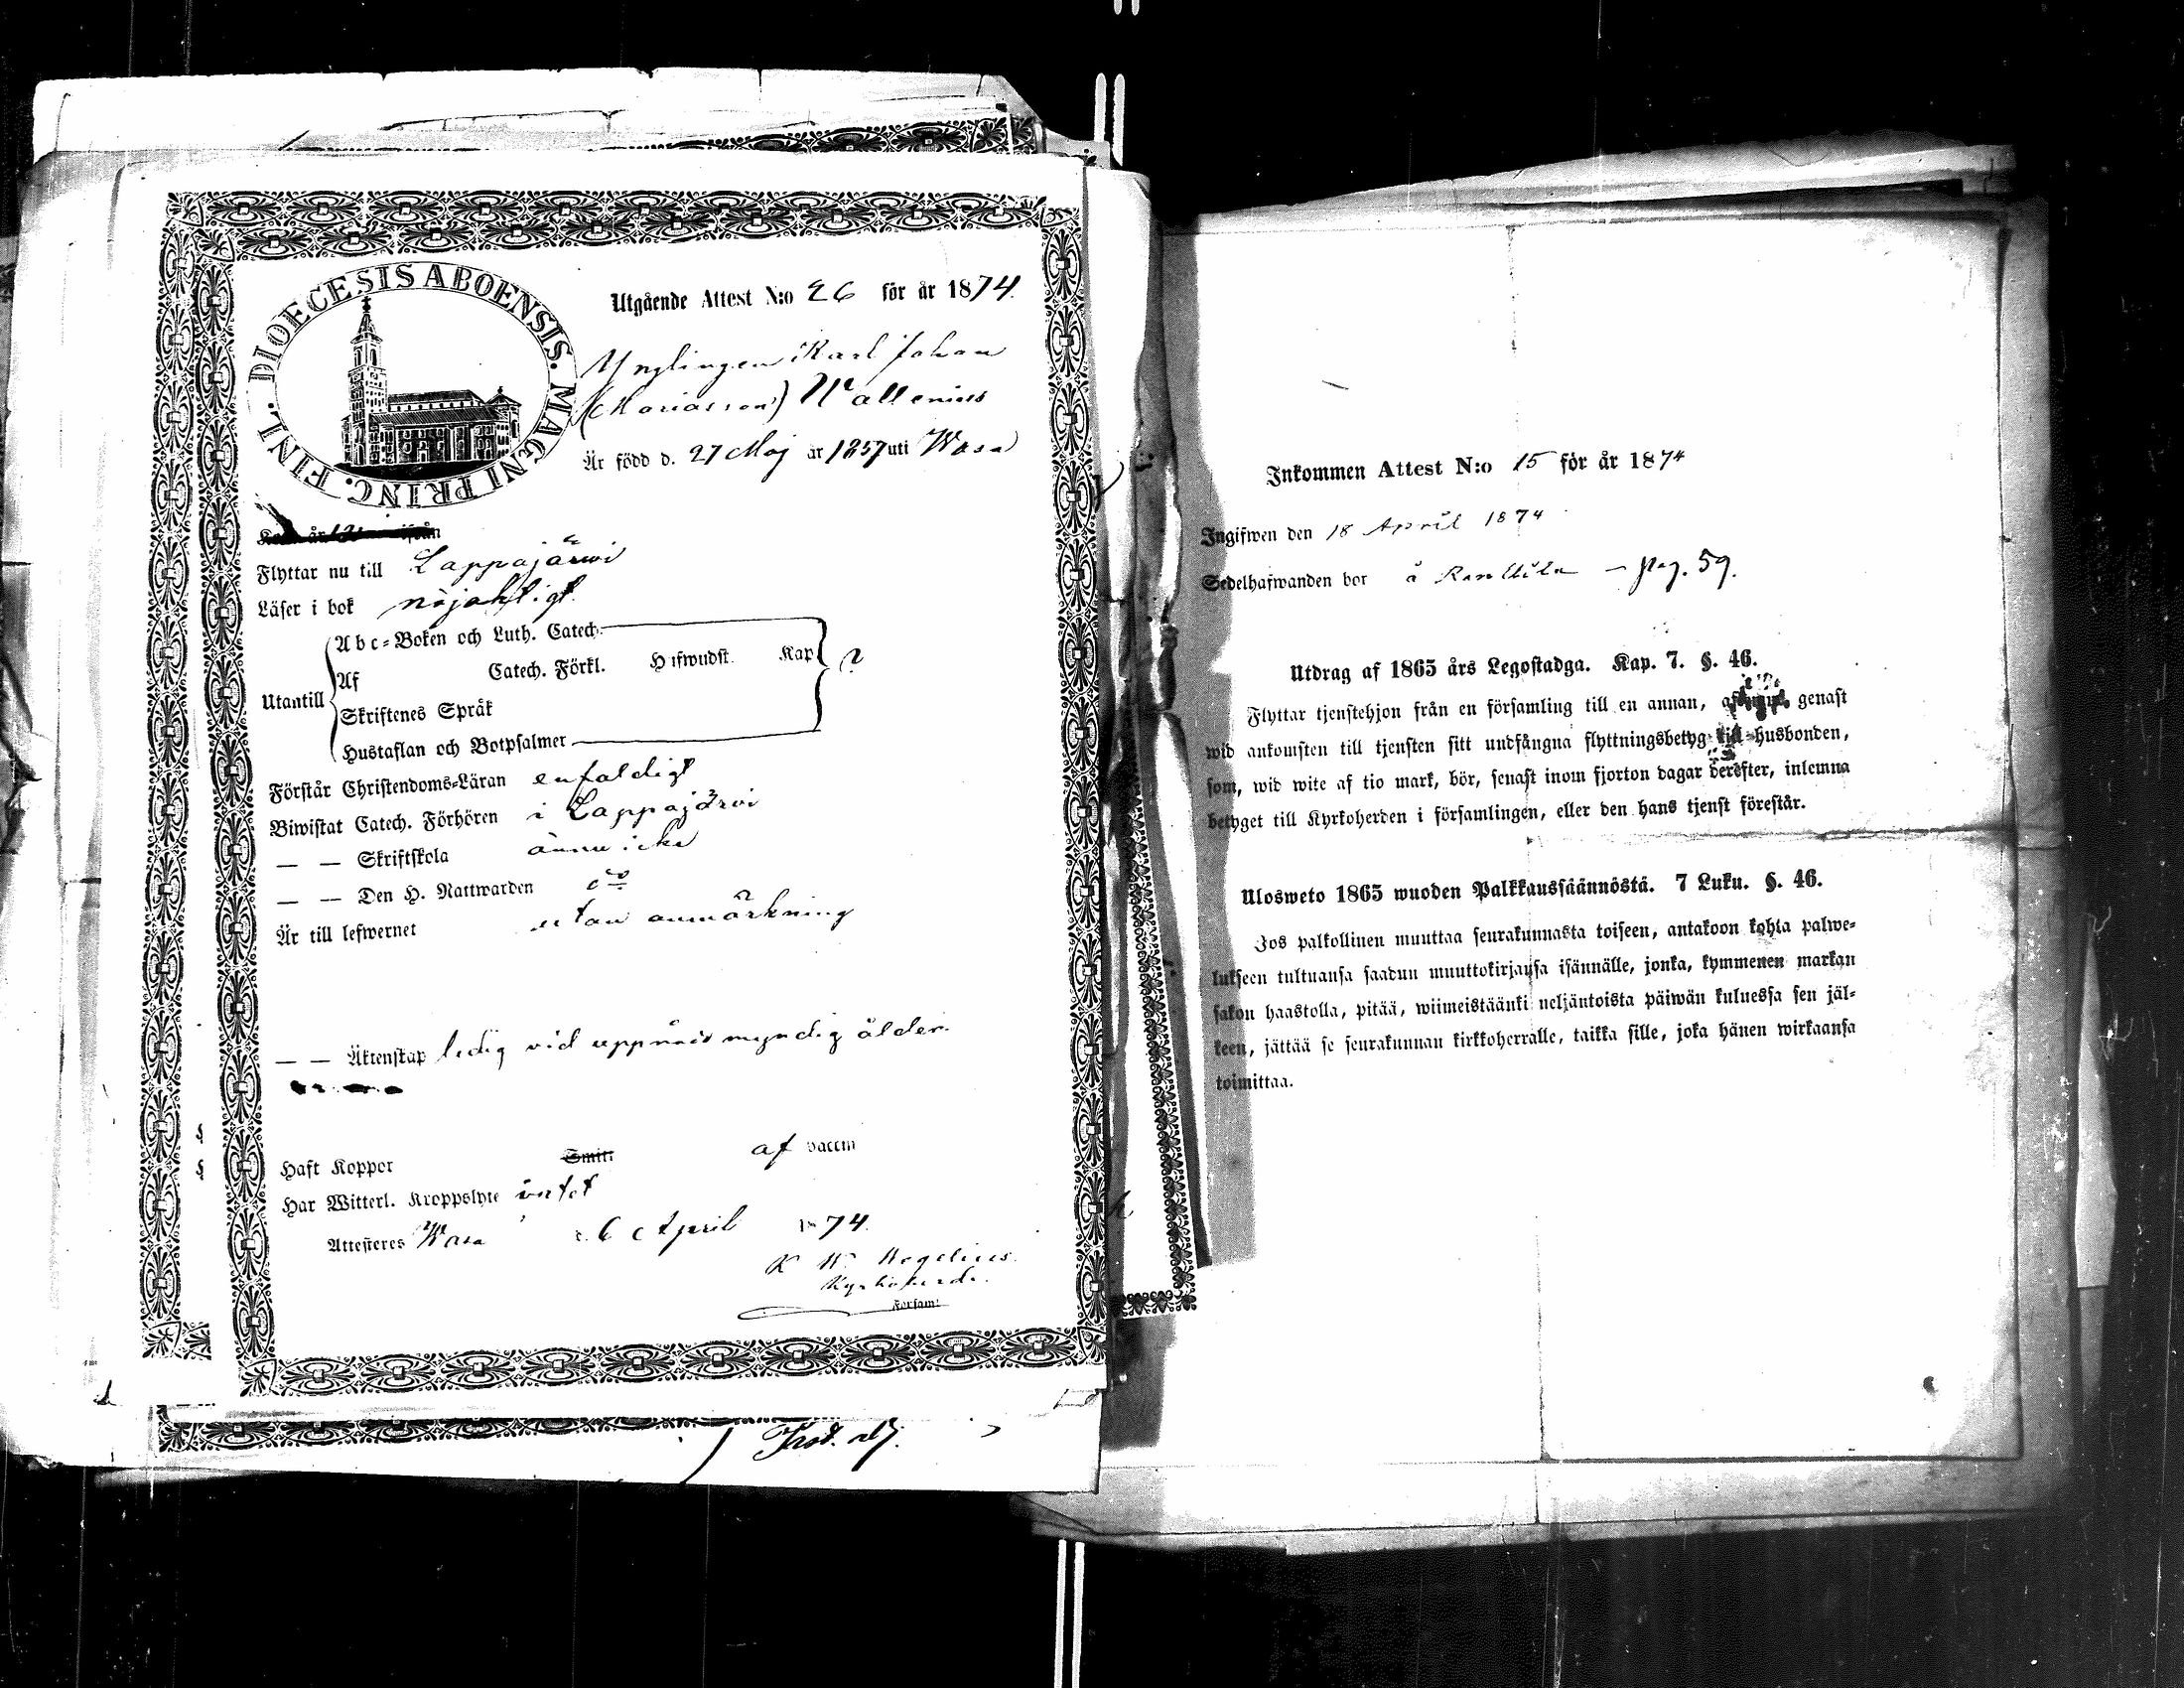 DIOECESIS ABOENSIS. MAGNI PRINC. FINL.
Utgående Attest N:o 26 för år 1874.
Ynglingen Karl Johan
(Mariasson) Wallenius
Är född d. 27 Maj år 1857 uti Wasa
Flyttar nu till Lappajärwi
Läser i bok nöjaktigt
Abc-Boken och Luth. Catech.
Af Catech. Förkl. Hufwudst. Kap
Utantill
Skriftenes Språk
Hustaflan och Botpsalmer
Förstår Christendoms-Läran enfaldigt
Biwistat Catech. Förhören i Lappajärvi
— — Skriftskola ännu icke
— — Den H. Nattwarden do
Är till lefwernet utan anmärkning
— — Äktenskap ledig vid uppnådd myndig ålder.
Haft Koppor Smitt af vaccin
Har Witterl. Kroppslyte intet
Attesteres Wasa d. 6 April 1874.
K W Wegelius.
Kyrkoherde.
Församl
Inkommen Attest N:o 15 för år 1874
Ingifwen den 18 April 1874
Sedelhafwanden bor å — pag. 59.
Utdrag af 1865 års Legostadga. Kap. 7. §. 46.
Flyttar tjenstehjon från en församling till en annan, genast
wid ankomsten till tjensten sitt undfångna flyttningsbetyg till husbonden,
som, wid wite af tio mark, bör, senast inom fjorton dagar derefter, inlemna
betyget till Kyrkoherden i församlingen, eller den hans tjenst förestår.
Ulosweto 1865 wuoden Palkkaussäännöstä. 7 Luku. §. 46.
Jos palkollinen muuttaa seurakunnasta toiseen, antakoon kohta palwe-
lukseen tultuansa saadun muuttokirjansa isännälle, jonka, kymmenen markan
sakon haastolla, pitää, wiimeistäänki neljäntoista päiwän kuluessa sen jäl-
keen, jättää se seurakunnan kirkkoherralle, taikka sille, joka hänen wirkaansa
toimittaa.